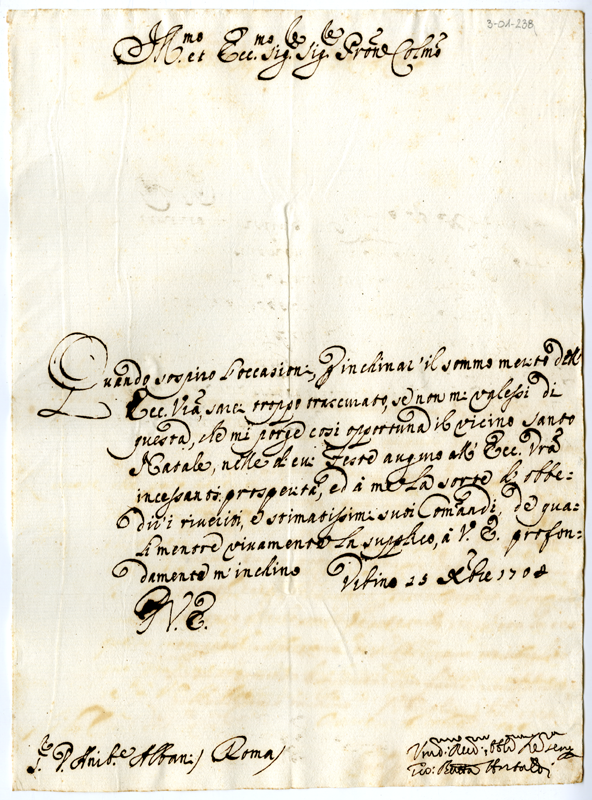 3-01-238
Ill.mo et Ecc.mo Sig.re Sig.re Prõne Colmõ
Quando sospiro l'occasioni, d'inchinar' il sommo merito dell'
Ecc. Vrã, sarei troppo traccurato, se non mi valessi di
questa, che mi porge così opportuna il vicino Santo
Natale, nelle di cui Feste auguro all' Ecc. Vrã
incessanti prosperità, ed à me la sorte di obbe=
dir' i riveriti, e stimatissimi suoi Comandi, de qua=
li mentre vivamente La supplico, à V. E. profon=
damente m'inchino Vrbino 23 Xbre 1708
D V. E.
S.r D. Anib.e Albani Roma
Vmil.mo Dev.mo Obbl.mo Se.re
Gio: Batta Antaldi